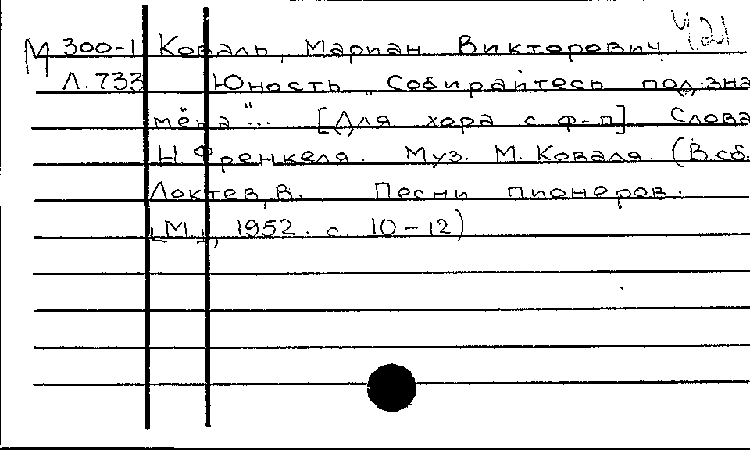 М 300-1 Коваль, Мариан Викторович 421
Л. 733 Юность „Собирайтесь под зна
мёна"... [Для хора с ф-п] Слова
Н. Френкеля. Муз. М. Коваля. (В сб.
Локтев, В. Песни пионеров.
[М.], 1952. с. 10-12)